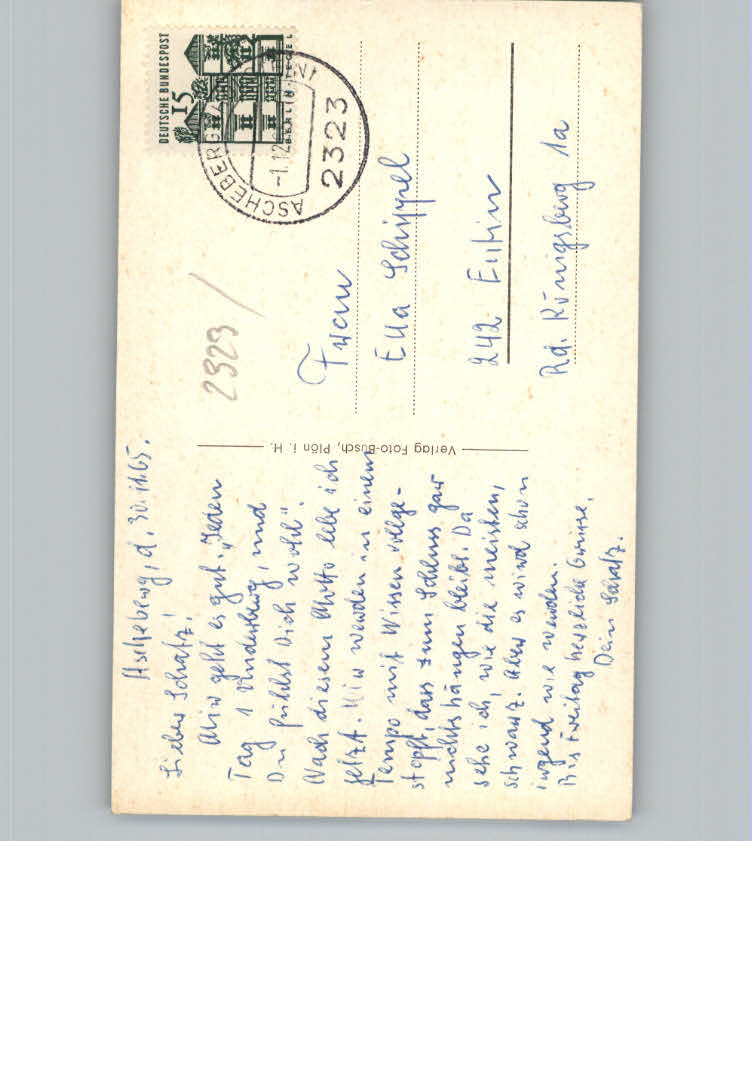 Ascheberg, d. 30.11.65.
Lieber Schatz!
Mir geht es gut. „Jeden
Tag 1 Underberg, und
Du fühlst Dich wohl“.
Nach diesem Motto lebe ich
jetzt. Wir werden in einem
Tempo mit Wissen vollge-
stopft, dass zum Schluss gar
nichts hängen bleibt. Da
sehe ich, wie die meisten,
schwarz. Aber es wird schon
irgend wie werden.
Bis Freitag herzliche Grüsse,
Dein Schatz.
Verlag Foto-Busch, Plön i. H.
DEUTSCHE BUNDESPOST
15
BERLIN-TEGEL
ASCHEBERG
-1.12
2323
2323
Frau
Ella Schippel
242 Eutin
Rd. Königsberg 1a